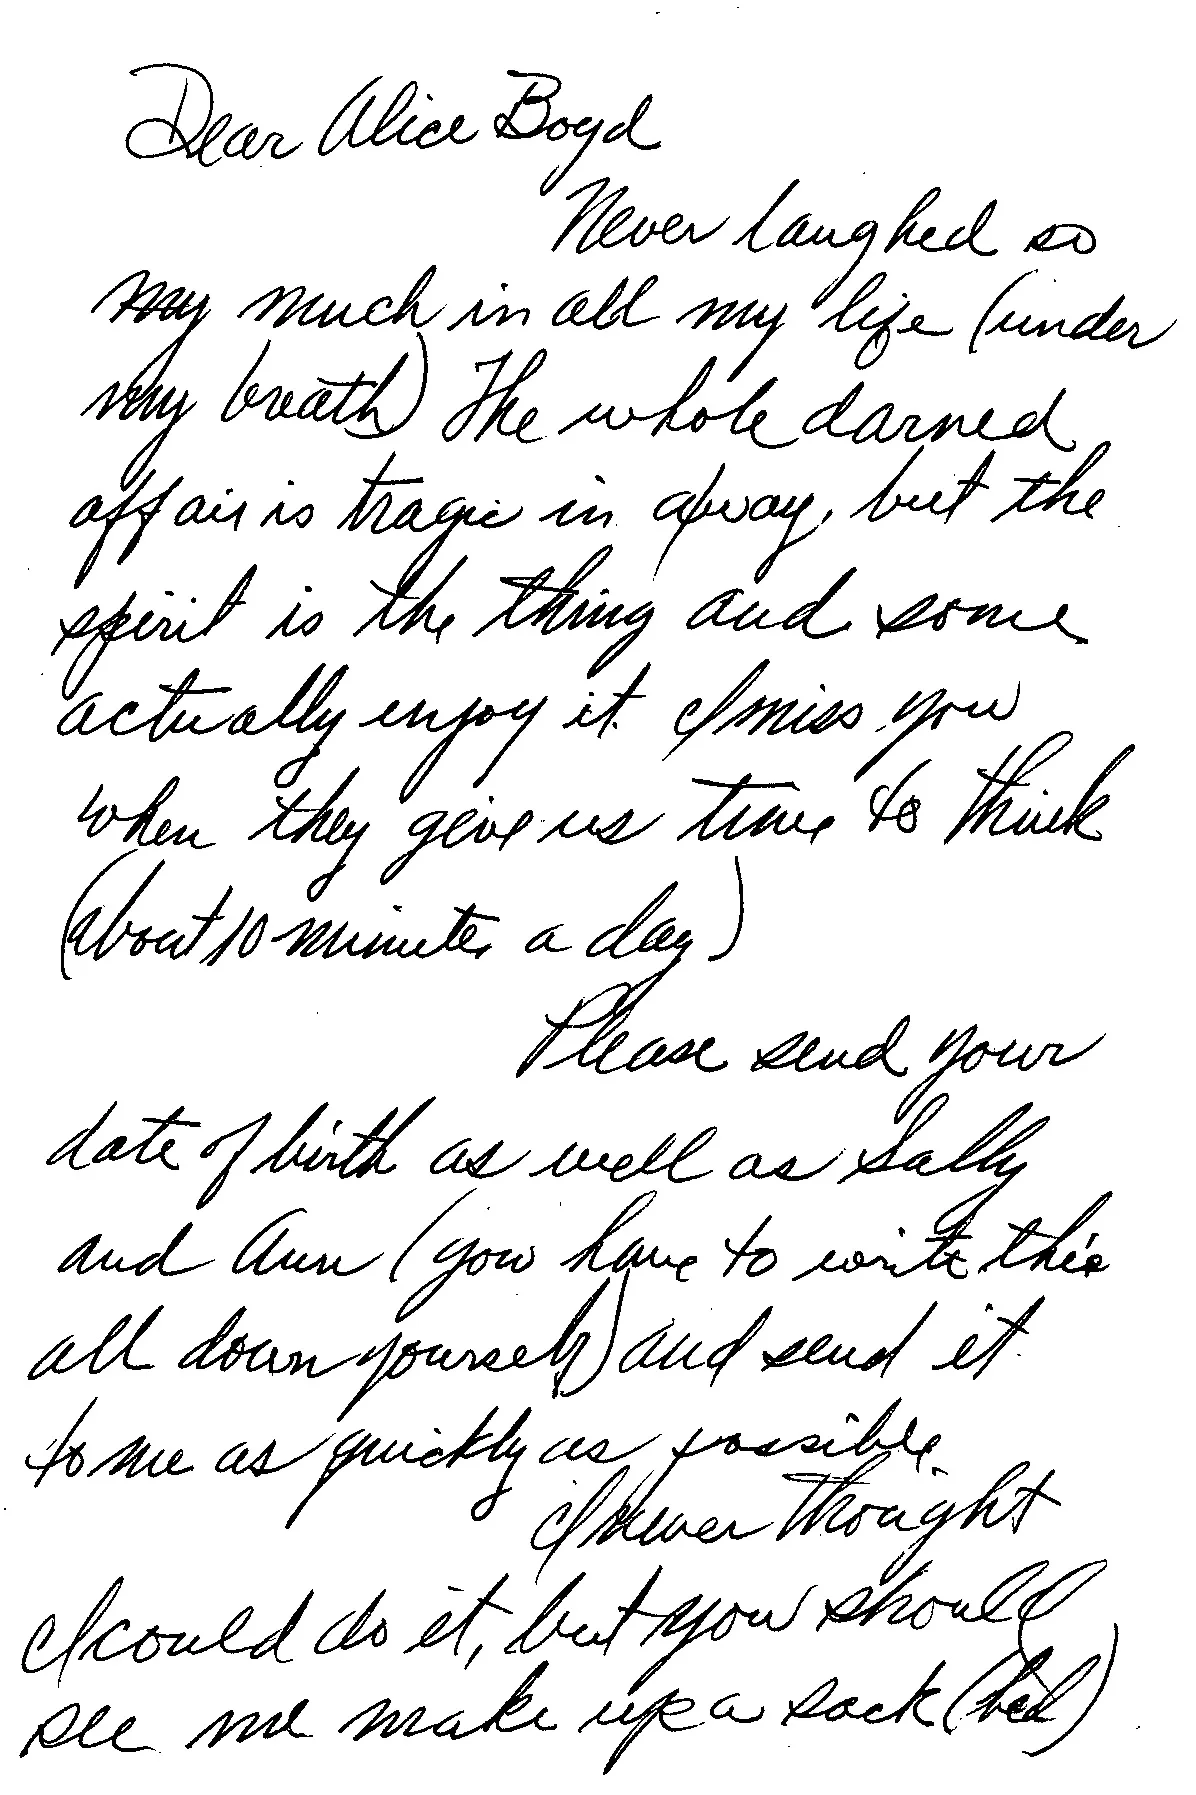 Dear Alice Boyd
Never laughed so
my much in all my life (under
my breath) The whole darned
affair is tragic in a way, but the
spirit is the thing and some
actually enjoy it. I miss you
when they give us time to think
(about 10 minutes a day)
Please send your
date of birth as well as Sally
and Ann (you have to write this
all down yourself) and send it
to me as quickly as possible.
I never thought
I could do it, but you should
see me make up a sack (bed)